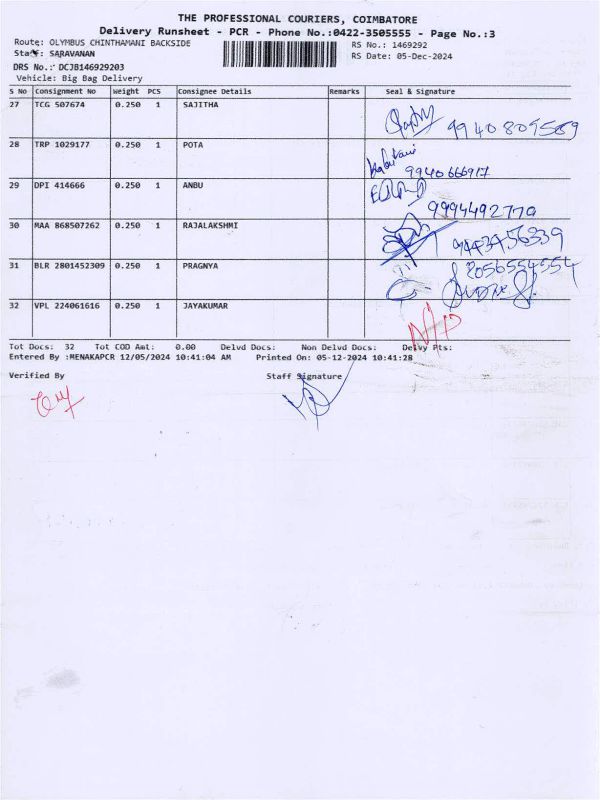 THE PROFESSIONAL COURIERS, COIMBATORE
Delivery Runsheet - PCR - Phone No.:0422-3505555 - Page No.:3
Route: OLYMBUS CHINTHAMANI BACKSIDE
RS No.: 1469292
Staff: SARAVANAN
RS Date: 05-Dec-2024
DRS No.: DCJB146929203
Vehicle: Big Bag Delivery
S No Consignment No Weight PCS Consignee Details Remarks Seal & Signature
27 TCG 507674 0.250 1 SAJITHA
9940809569
28 TRP 1029177 0.250 1 POTA
9940666917
29 DPI 414666 0.250 1 ANBU
9994492770
30 MAA 868507262 0.250 1 RAJALAKSHMI
9443456339
31 BLR 2801452309 0.250 1 PRAGNYA
8056554554
32 VPL 224061616 0.250 1 JAYAKUMAR
Tot Docs: 32 Tot COD Amt: 0.00 Delvd Docs: Non Delvd Docs: Delvy Pts:
Entered By :MENAKAPCR 12/05/2024 10:41:04 AM Printed On: 05-12-2024 10:41:28
Verified By Staff Signature